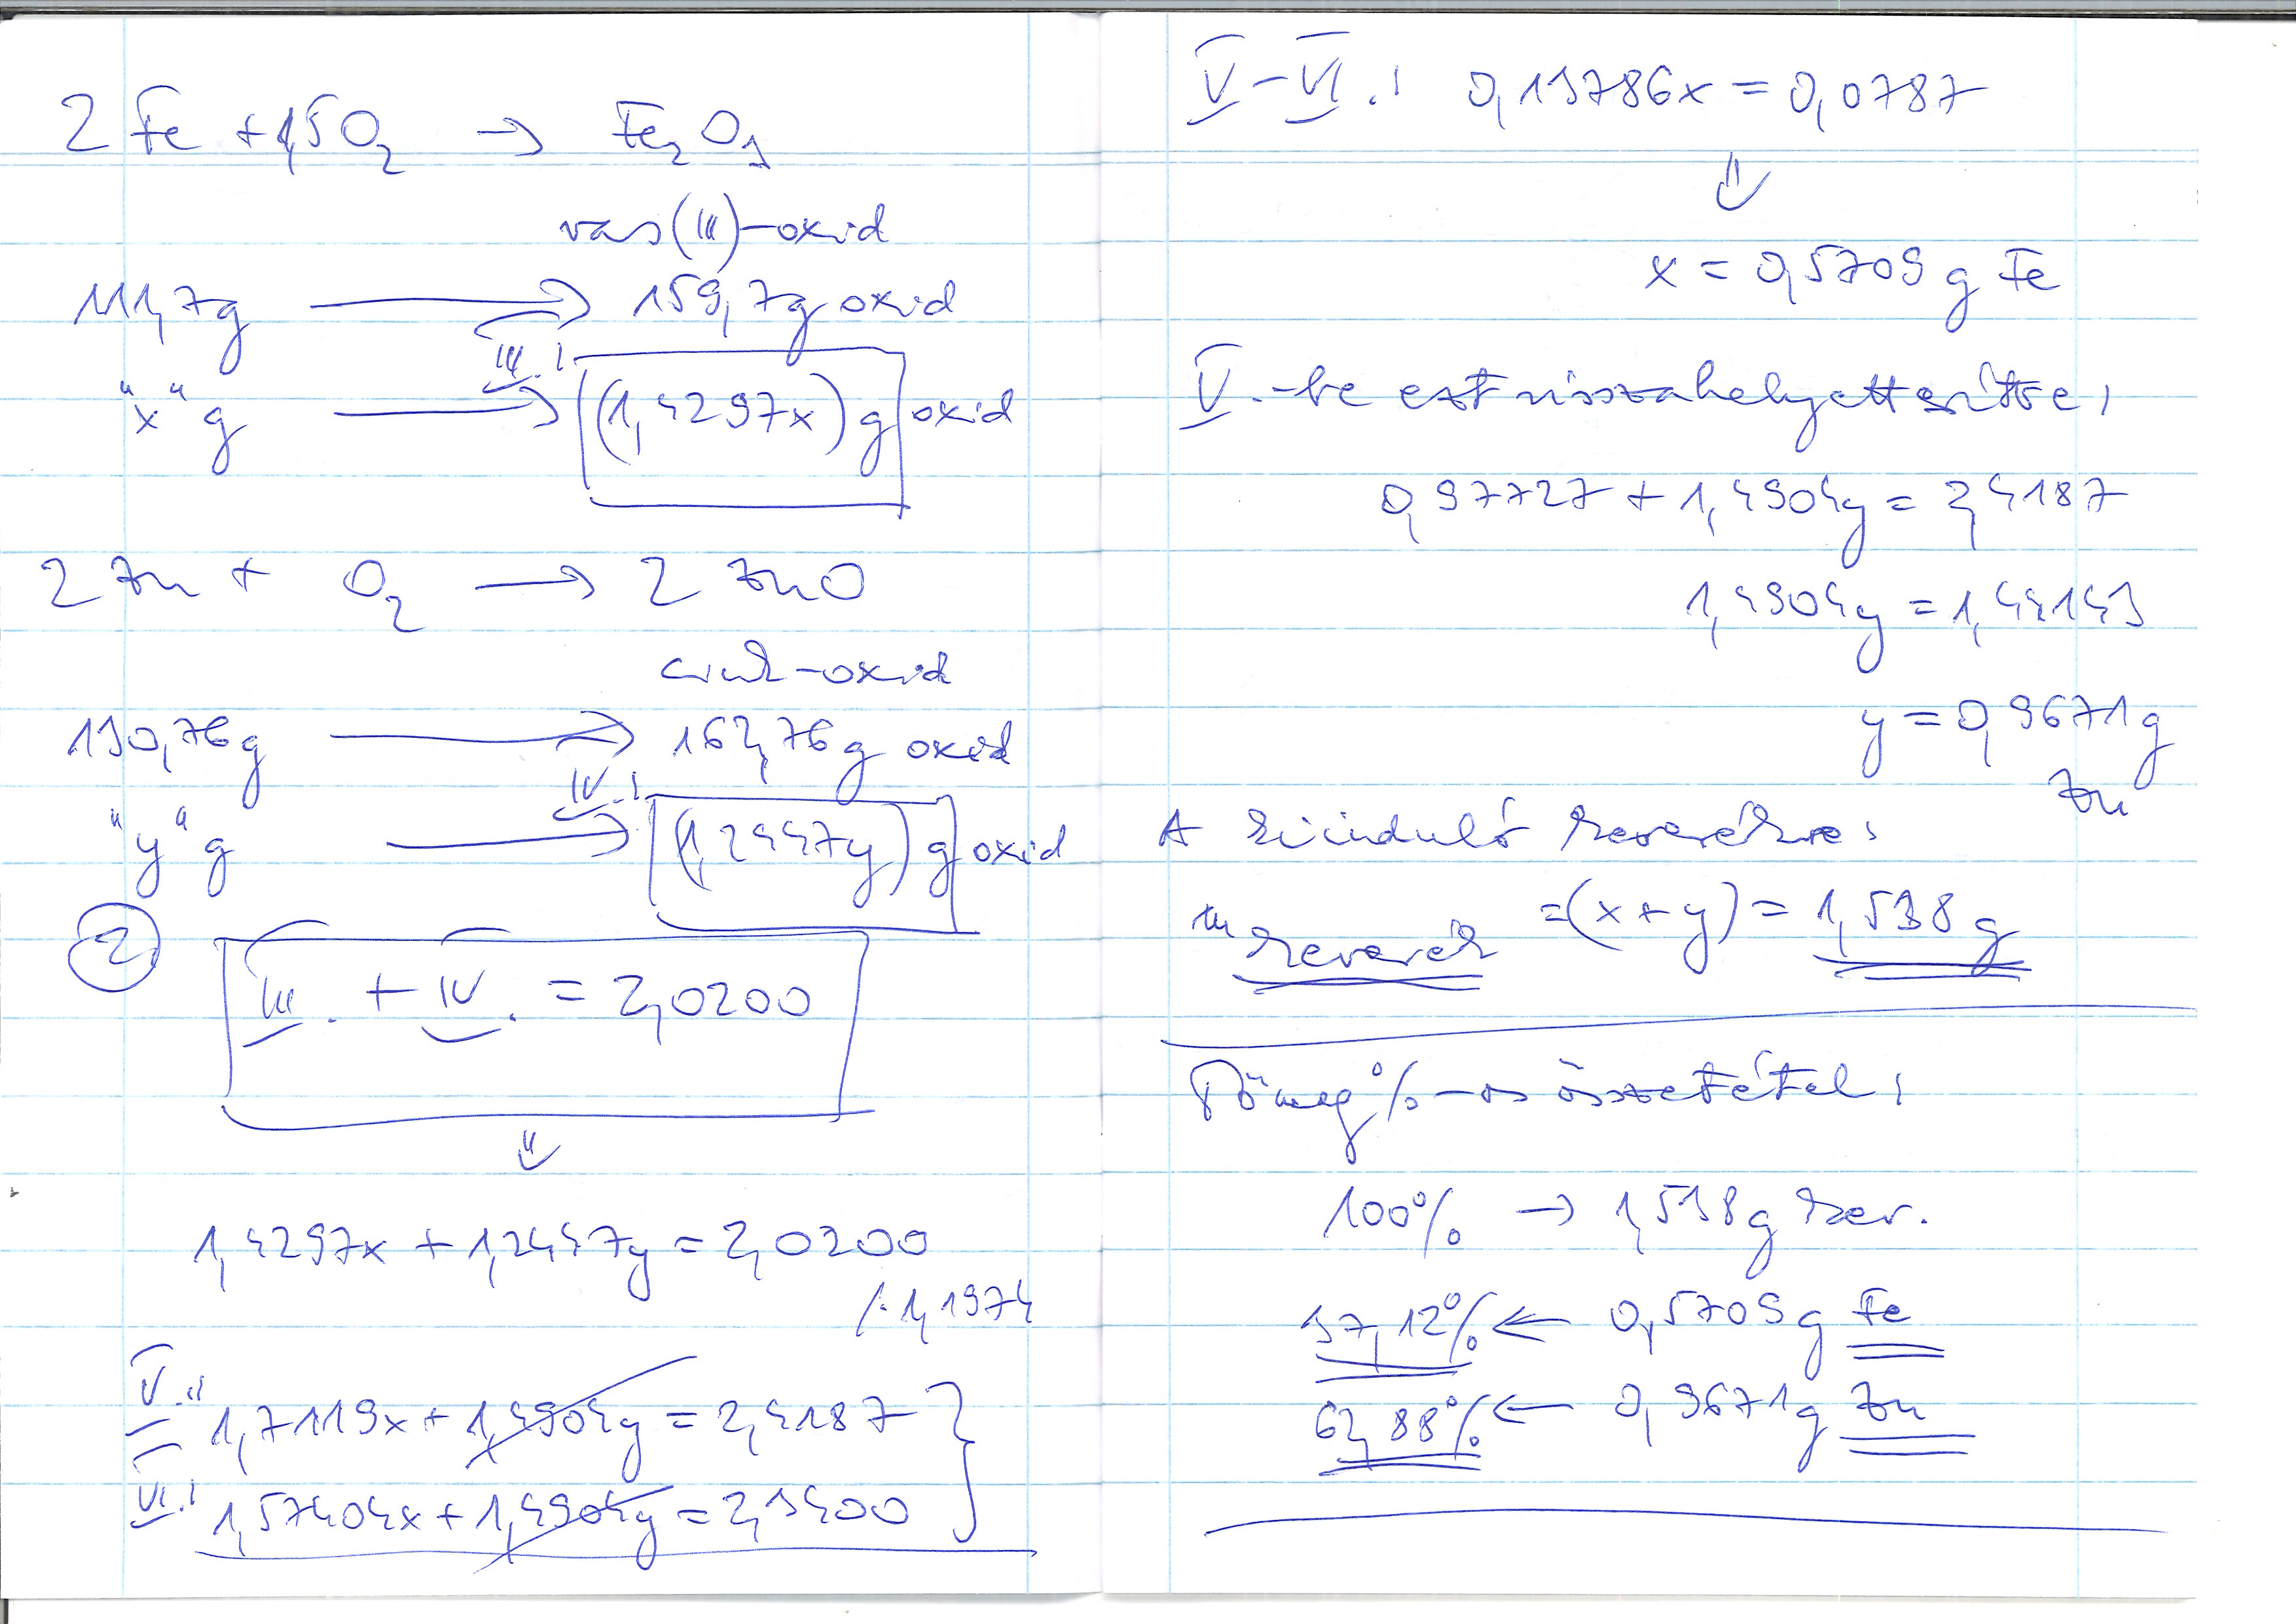 2 Fe + 1,5 O₂ → Fe₂O₃
vas(III)-oxid
111,7g → 159,7g oxid
"x" g → III.: (1,4297x) g oxid
2 Zn + O₂ → 2 ZnO
cink-oxid
130,76g → 162,76g oxid
"y" g → IV.: (1,2447y) g oxid
2 III. + IV. = 2,0200
⇓
1,4297x + 1,2447y = 2,0200
/·1,1974
V.: 1,7119x + 1,4904y = 2,4187
VI.: 1,57404x + 1,4904y = 2,3400
V-VI.: 0,13786x = 0,0787
⇓
x = 0,5709 g Fe
V.-be ezt visszahelyettesítve:
0,97727 + 1,4904y = 2,4187
1,4904y = 1,44143
y = 0,9671 g
Zn
A kiinduló keverékre:
m keverék = (x+y) = 1,538 g
Tömeg%-os összetétel:
100% → 1,538g kev.
37,12% ← 0,5709 g Fe
62,88% ← 0,9671 g Zn